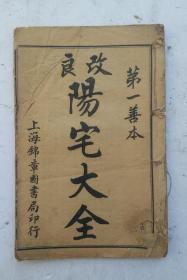 第一善本
改良
陽宅大全
上海錦章圖書局印行